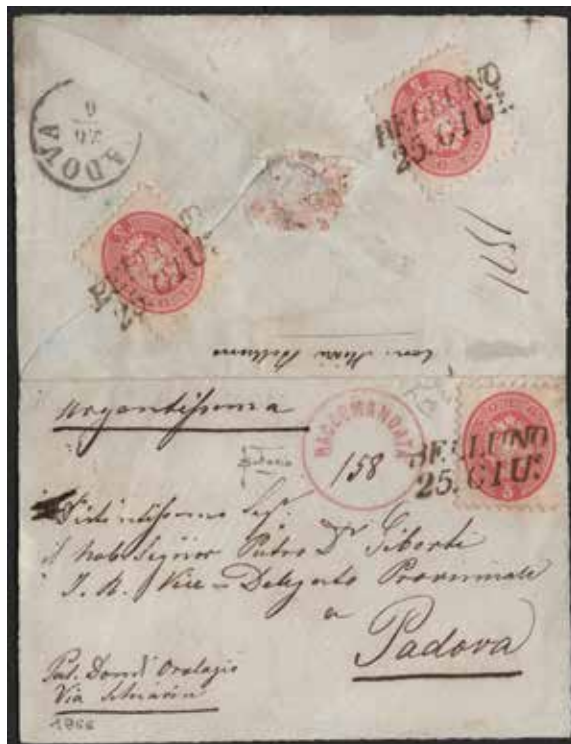 BELLUNO
25. GIU:
PADOVA
26
6
25. GIU:
1571
Urgentissima
RACCOMANDATA
158
BELLUNO
25. GIU:
5
Distintissimo Sigr.
il Nob. Signor Pietro Dr. Giberti
I. R. Vice = Delegato Provinciale
a
Padova
Pal. Dondi Orologio
Via
1866